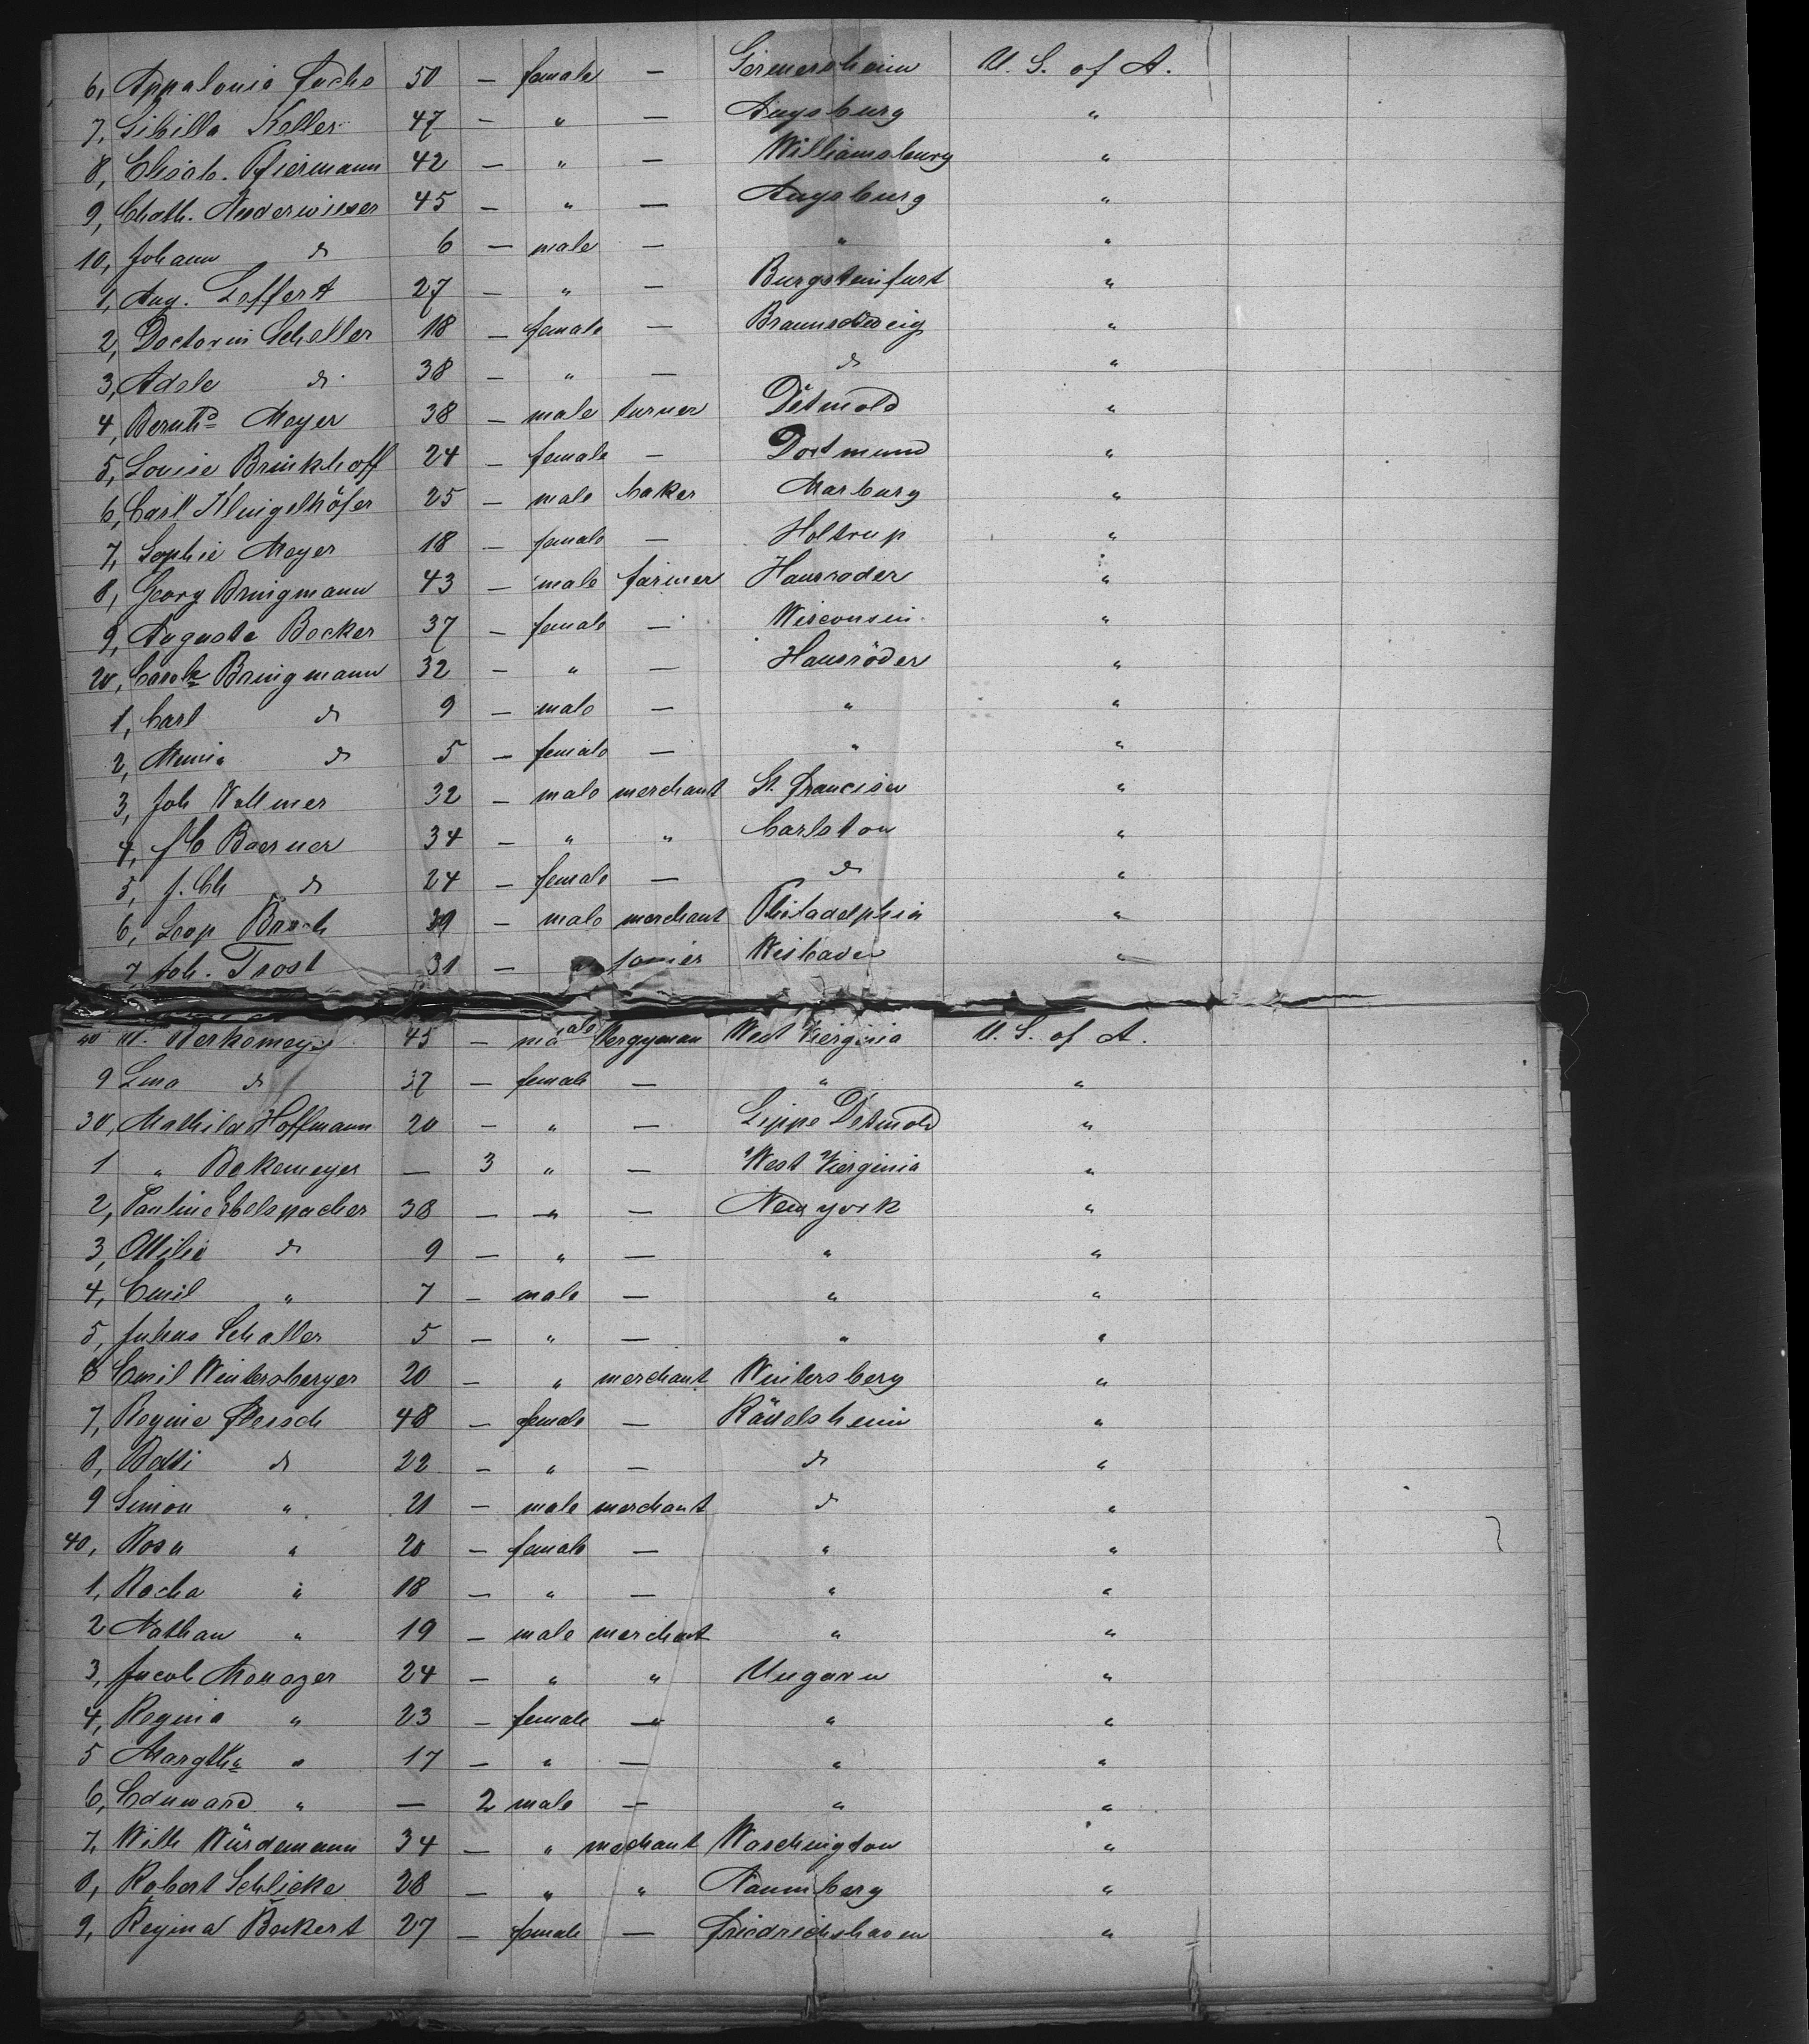 6, Appalonia Fuchs 50 — female — Germersheim U. S. of A.
7, Sibilla Keller 47 — " — Augsburg "
8, Elisab. Pfiermann 42 — " — Williamsburg "
9, Cath. Niederwieser 45 — " — Augsburg "
10, Johann do 6 — male — " "
1, Aug. Leffert 27 — " — Burgsteinfurt "
2, Doctorin Scheller 18 — female — Braunschweig "
3, Adele do 38 — " — do "
4, Bernhd Meyer 38 — male turner Detmold "
5, Louise Brinkhoff 24 — female — Dortmund "
6, Carl Klingelhöfer 25 — male baker Marburg "
7, Sophie Meyer 18 — female — Holtrup "
8, Georg Bringmann 43 — male farmer Hausroder "
9, Auguste Becker 37 — female — Wisconsin "
20, Carole Bringmann 32 — " — Hausröder "
1, Carl do 9 — male — " "
2, Minna do 5 — female — " "
3, Joh Vollmer 32 — male merchant St. Francisco "
4, J C Boerner 34 — " " Carlston "
5, J. Ch do 24 — female — do "
6, Leop Bosch 39 — male merchant Philadelphia "
7, Joh. Trost 31 — " Wisbaden "
W. Berkemeyer 45 — male Clergyman West Vierginia U. S. of A.
9 Lina do 37 — female — " "
30, Mathilde Hoffmann 20 — " — Lippe Detmold "
1 " Bekemeyer — 3 " — West Vierginia "
2, Pauline Ebelspacher 38 — " — New york "
3, Ottilie do 9 — " — " "
4, Emil " 7 — male — " "
5, Julius Schaller 5 — " — " "
6 Emil Wintersberger 20 — " merchant Wintersberg "
7, Regine Flersch 48 — female — Rüsselsheim "
8, Betti do 22 — " — do "
9 Simon " 21 — male merchant do "
40, Rosa " 20 — female — " "
1, Rocha " 18 — " — " "
2 Nathan " 19 — male merchant " "
3, Jacob Menozer 24 — " " Ungarn "
4, Regina " 23 — female — " "
5 Margtha " 17 — " — " "
6, Eduward " — 2 male — " "
7, Wilh Würdemann 34 — " mechant Waschington "
8, Robert Schlicke 28 — " " Naumberg "
9, Regina Beckert 27 — female — Friedrichshaven "